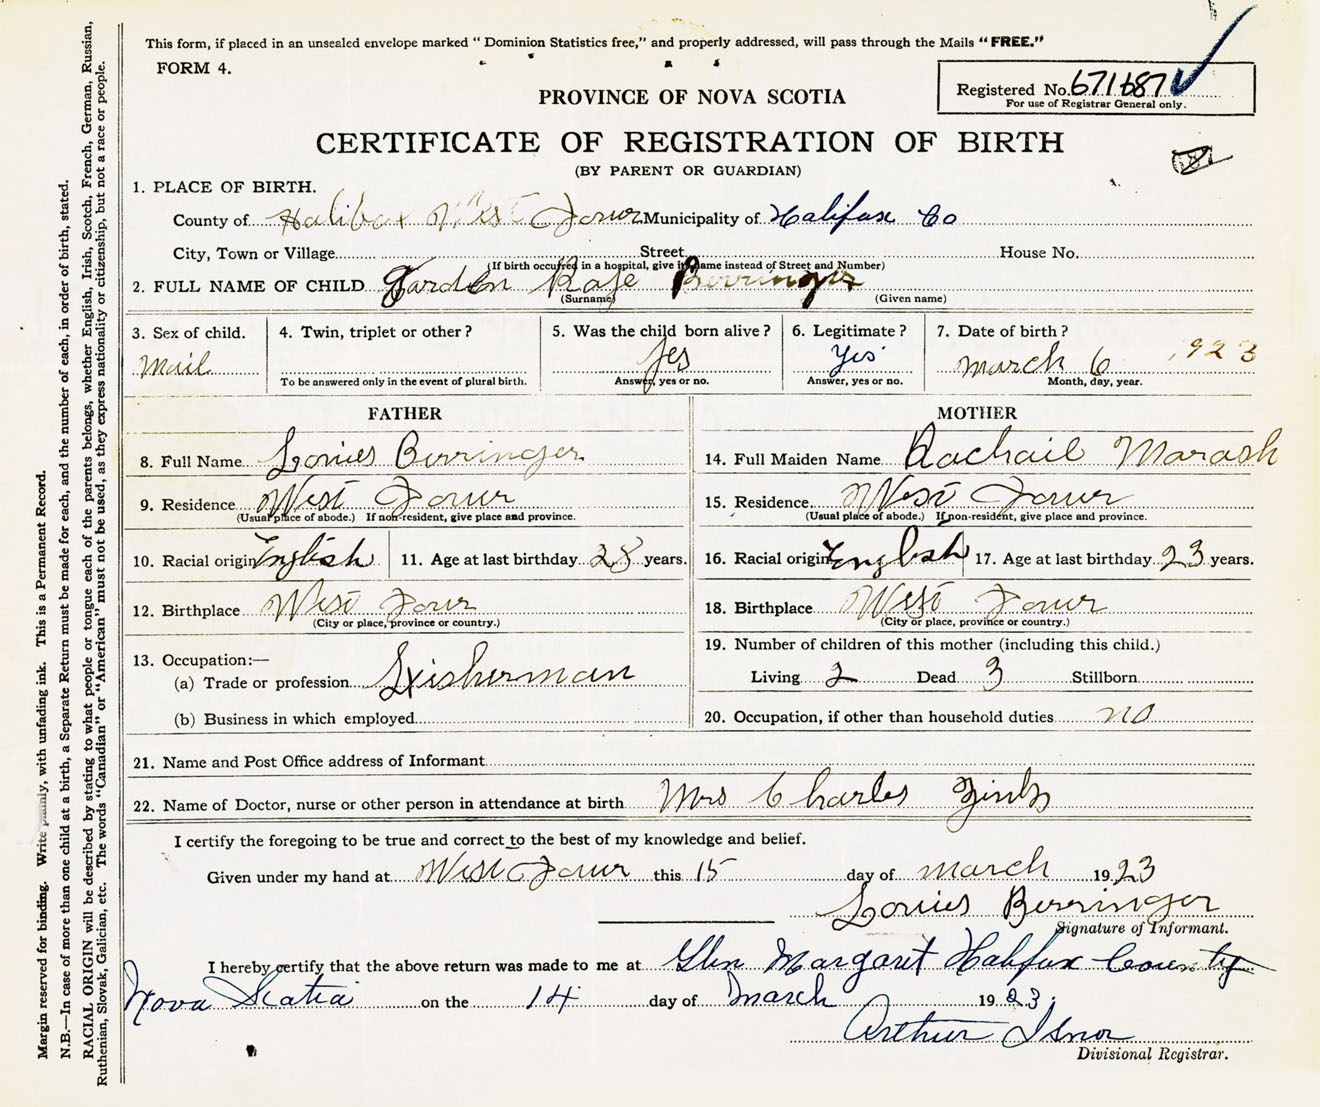 This form, if placed in an unsealed envelope marked "Dominion Statistics free," and properly addressed, will pass through the Mails "FREE."
FORM 4.
Registered No. 671687
For use of Registrar General only.
PROVINCE OF NOVA SCOTIA
CERTIFICATE OF REGISTRATION OF BIRTH
(BY PARENT OR GUARDIAN)
1. PLACE OF BIRTH.
County of Halifax West Dover Municipality of Halifax Co
City, Town or Village Street House No.
(If birth occurred in a hospital, give its name instead of Street and Number)
2. FULL NAME OF CHILD Garden Rafe Berringer
(Surname) (Given name)
3. Sex of child. 4. Twin, triplet or other? 5. Was the child born alive? 6. Legitimate? 7. Date of birth?
Mail yes Yes March 6 1923
To be answered only in the event of plural birth. Answer, yes or no. Answer, yes or no. Month, day, year.
FATHER MOTHER
8. Full Name Lonies Berringer 14. Full Maiden Name Rachail Marash
9. Residence West Dover 15. Residence West Dover
(Usual place of abode.) If non-resident, give place and province. (Usual place of abode.) If non-resident, give place and province.
10. Racial origin English 11. Age at last birthday 28 years. 16. Racial origin English 17. Age at last birthday 23 years.
12. Birthplace West Dover 18. Birthplace West Dover
(City or place, province or country.) (City or place, province or country.)
19. Number of children of this mother (including this child.)
13. Occupation:—
(a) Trade or profession Fisherman Living 2 Dead 3 Stillborn
(b) Business in which employed 20. Occupation, if other than household duties no
21. Name and Post Office address of Informant
22. Name of Doctor, nurse or other person in attendance at birth Mrs Charles Zink
I certify the foregoing to be true and correct to the best of my knowledge and belief.
Given under my hand at West Dover this 15 day of March 1923
Lonies Berringer
Signature of Informant.
I hereby certify that the above return was made to me at Glen Margaret Halifax County
Nova Scotia on the 14 day of March 1923.
Arthur Isnor
Divisional Registrar.
Margin reserved for binding. Write plainly, with unfading ink. This is a Permanent Record.
N.B.—In case of more than one child at a birth, a Separate Return must be made for each, and the number of each, in order of birth, stated.
RACIAL ORIGIN will be described by stating to what people or tongue each of the parents belongs, whether English, Irish, Scotch, French, German, Russian,
Ruthenian, Slovak, Galician, etc. The words "Canadian" or "American" must not be used, as they express nationality or citizenship, but not a race or people.